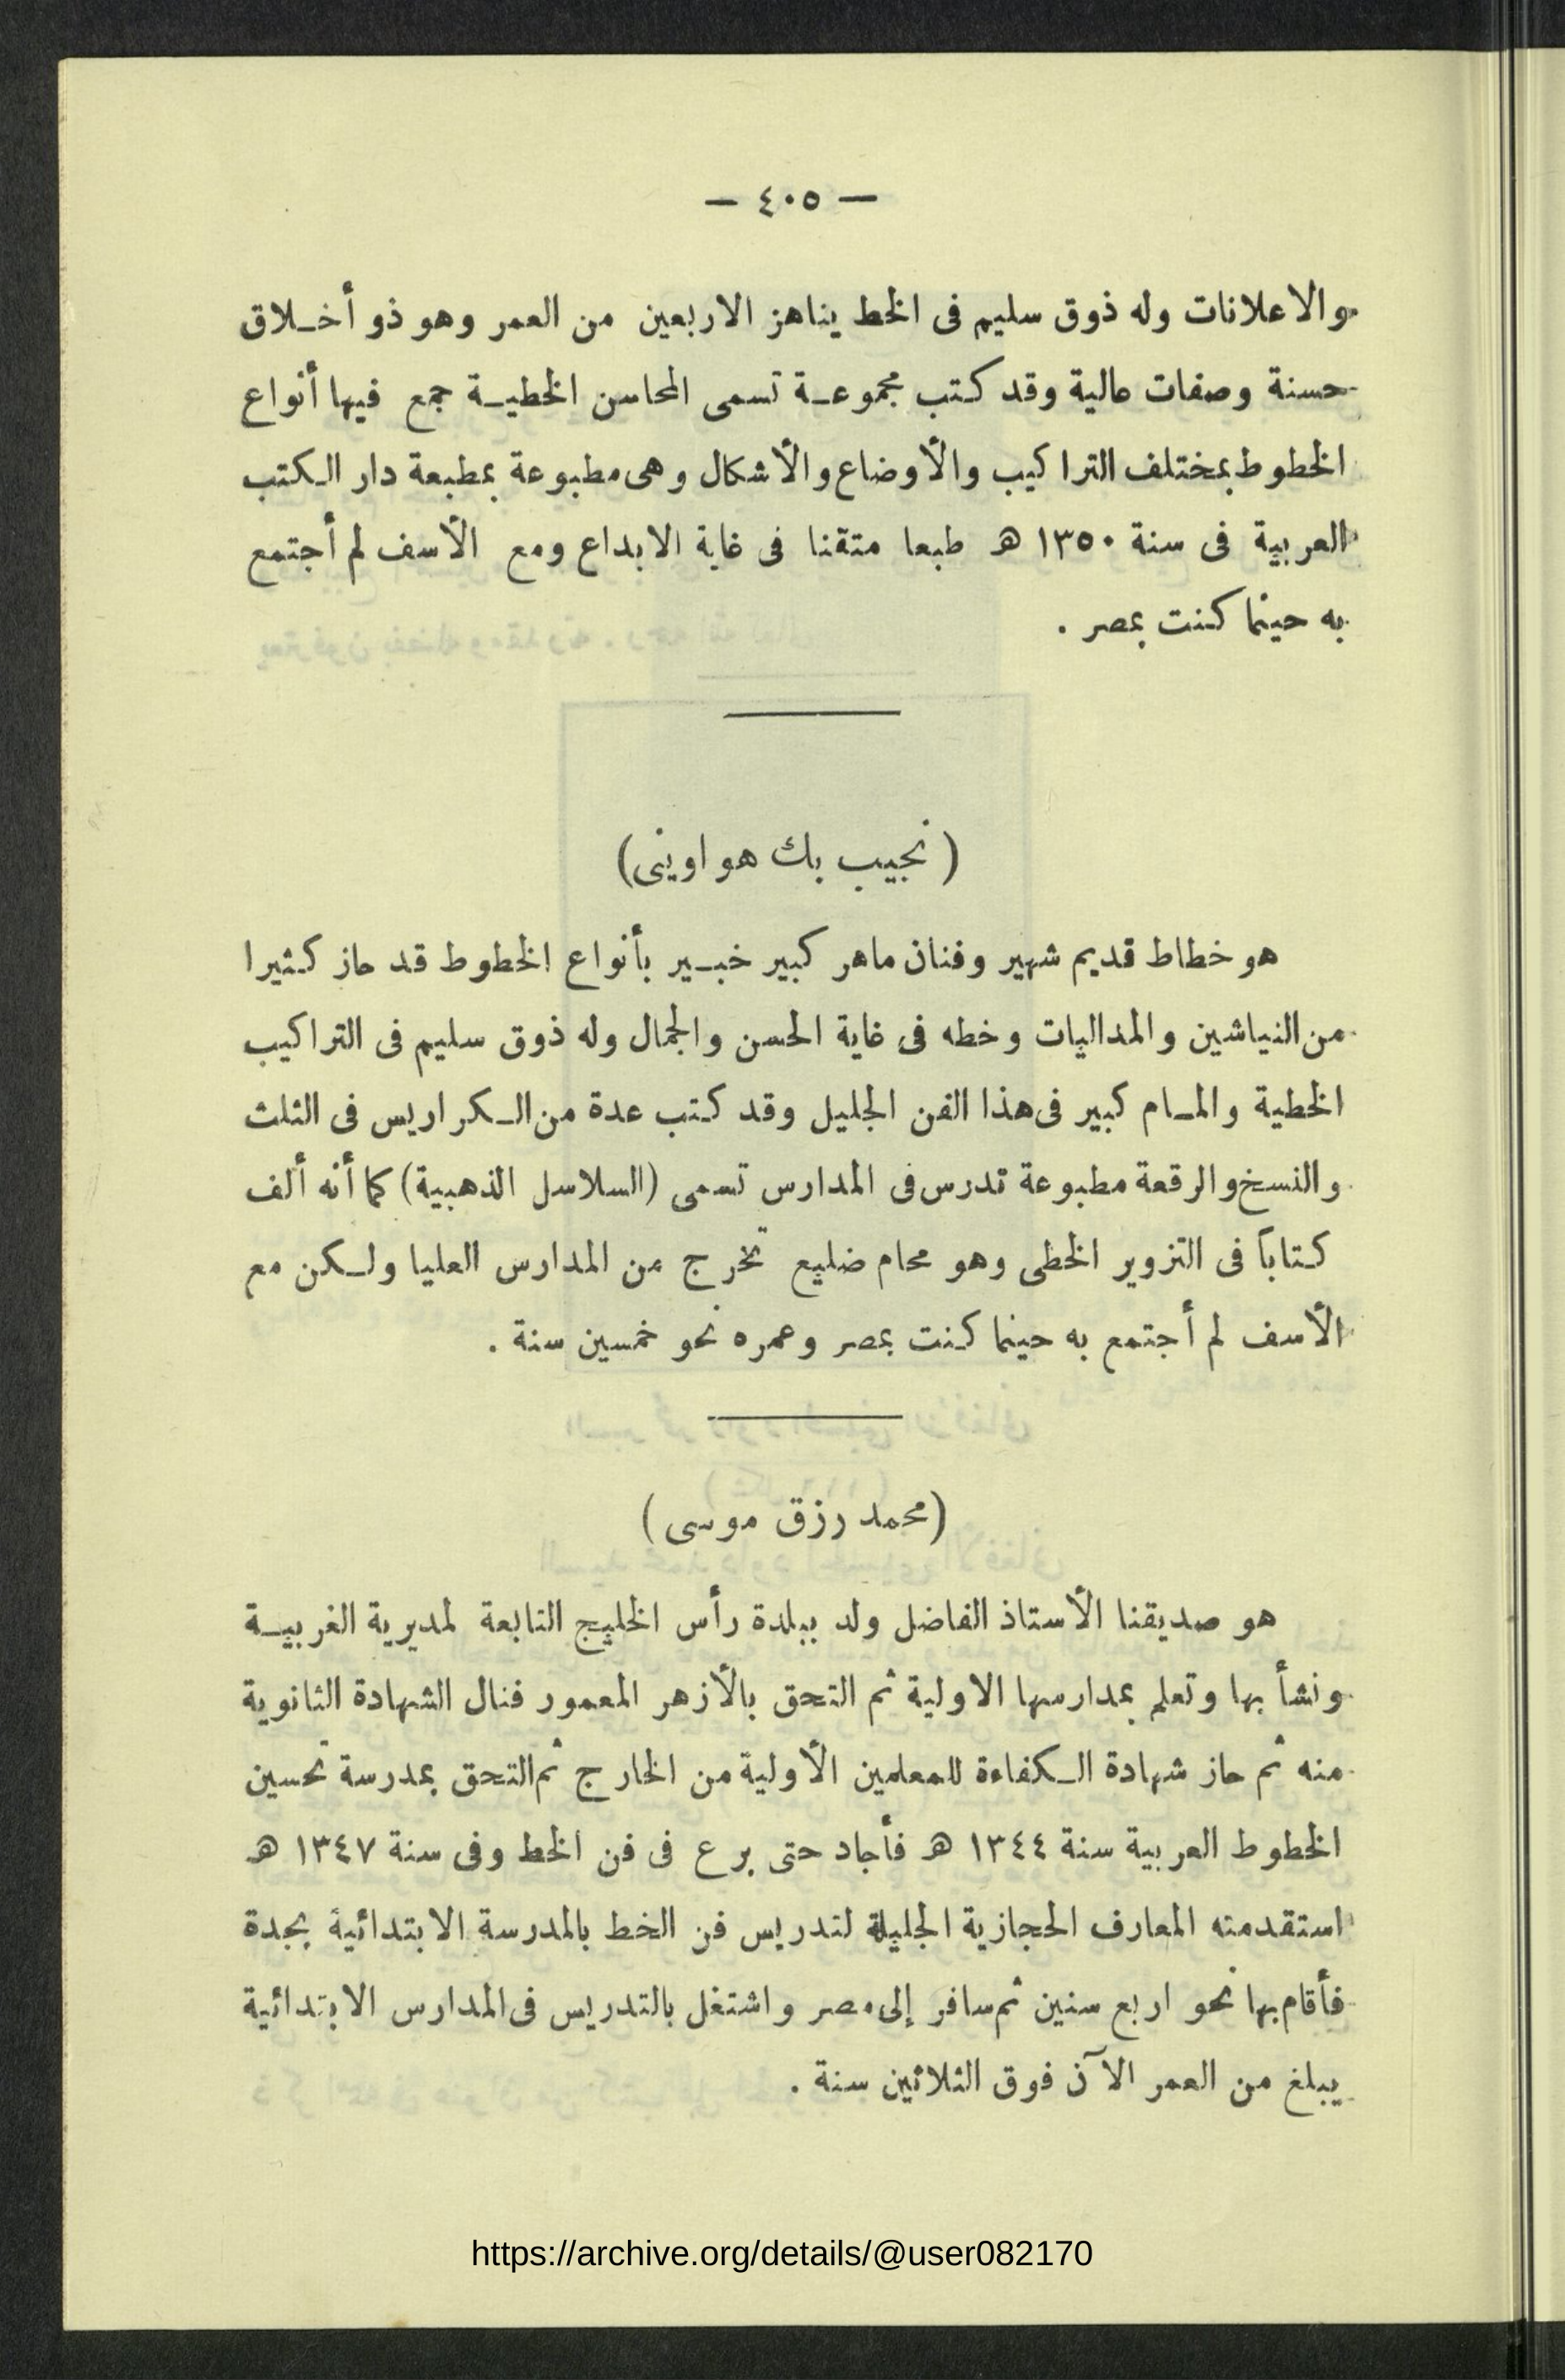 — ٤٠٥ —
والاعلانات وله ذوق سليم فى الخط يناهز الاربعين من العمر وهو ذو أخلاق
حسنة وصفات عالية وقد كتب مجموعة تسمى المحاسن الخطية جمع فيها أنواع
الخطوط بمختلف التراكيب والأوضاع والأشكال وهى مطبوعة بمطبعة دار الكتب
العربية فى سنة ١٣٥٠ هـ طبعا متقنا فى غاية الابداع ومع الأسف لم أجتمع
به حينما كنت بمصر .
( نجيب بك هواوينى)
هو خطاط قديم شهير وفنان ماهر كبير خبير بأنواع الخطوط قد حاز كثيرا
من النياشين والمداليات وخطه فى غاية الحسن والجمال وله ذوق سليم فى التراكيب
الخطية والمام كبير فى هذا الفن الجليل وقد كتب عدة من الكراريس فى الثلث
والنسخ والرقعة مطبوعة تدرس فى المدارس تسمى (السلاسل الذهبية) كما أنه ألف
كتاباً فى التزوير الخطى وهو محام ضليع تخرج من المدارس العليا ولكن مع
الأسف لم أجتمع به حينما كنت بمصر وعمره نحو خمسين سنة .
(محمد رزق موسى )
هو صديقنا الأستاذ الفاضل ولد ببلدة رأس الخليج التابعة لمديرية الغربية
ونشأ بها وتعلم بمدارسها الاولية ثم التحق بالأزهر المعمور فنال الشهادة الثانوية
منه ثم حاز شهادة الكفاءة للمعلمين الأولية من الخارج ثم التحق بمدرسة تحسين
الخطوط العربية سنة ١٣٤٤ هـ فأجاد حتى برع فى فن الخط وفى سنة ١٣٤٧ هـ
استقدمته المعارف الحجازية الجليلة لتدريس فن الخط بالمدرسة الابتدائية بجدة
فأقام بها نحو اربع سنين ثم سافر إلى مصر واشتغل بالتدريس فى المدارس الابتدائية
يبلغ من العمر الآن فوق الثلاثين سنة .
https://archive.org/details/@user082170